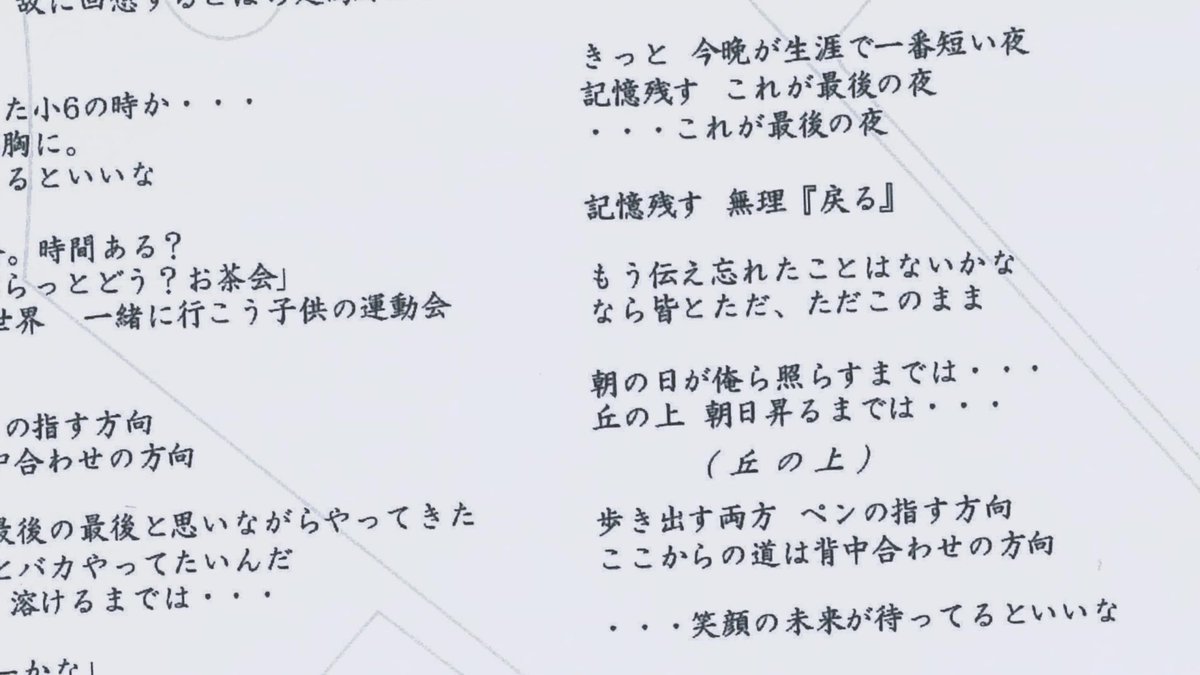 た小6の時か・・・
胸に。
るといいな
。時間ある？
らっとどう？お茶会」
世界　一緒に行こう子供の運動会
の指す方向
中合わせの方向
最後の最後と思いながらやってきた
とバカやってたいんだ
溶けるまでは・・・
ーかな」
きっと　今晩が生涯で一番短い夜
記憶残す　これが最後の夜
・・・これが最後の夜
記憶残す　無理『戻る』
もう伝え忘れたことはないかな
なら皆とただ、ただこのまま
朝の日が俺ら照らすまでは・・・
丘の上　朝日昇るまでは・・・
（丘の上）
歩き出す両方　ペンの指す方向
ここからの道は背中合わせの方向
・・・笑顔の未来が待ってるといいな